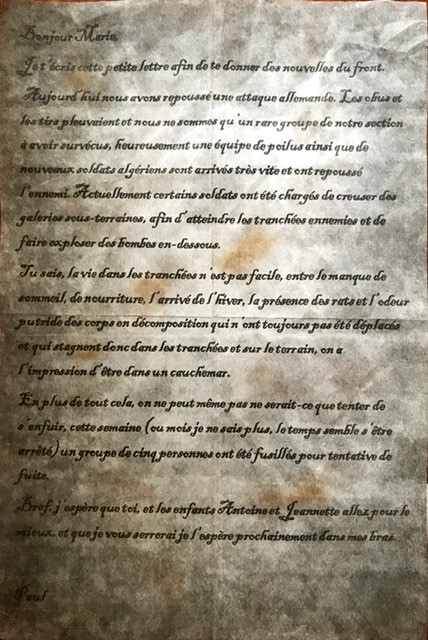 Bonjour Marie,
Je t'écris cette petite lettre afin de te donner des nouvelles du front.
Aujourd'hui nous avons repoussé une attaque allemande. Les obus et
les tirs pleuvaient et nous ne sommes qu'un rare groupe de notre section
à avoir survécus, heureusement une équipe de poilus ainsi que de
nouveaux soldats algériens sont arrivés très vite et ont repoussé
l'ennemi. Actuellement certains soldats ont été chargés de creuser des
galeries sous-terraines, afin d'atteindre les tranchées ennemies et de
faire exploser des bombes en-dessous.
Tu sais, la vie dans les tranchées n'est pas facile, entre le manque de
sommeil, de nourriture, l'arrivé de l'hiver, la présence des rats et l'odeur
putride des corps en décomposition qui n'ont toujours pas été déplacés
et qui stagnent donc dans les tranchées et sur le terrain, on a
l'impression d'être dans un cauchemar.
En plus de tout cela, on ne peut même pas ne serait-ce que tenter de
s'enfuir, cette semaine (ou mois je ne sais plus, le temps semble s'être
arrêté) un groupe de cinq personnes ont été fusillés pour tentative de
fuite.
Bref, j'espère que toi, et les enfants Antoine et Jeannette allez pour le
mieux, et que je vous serrerai je l'espère prochainement dans mes bras.
Paul